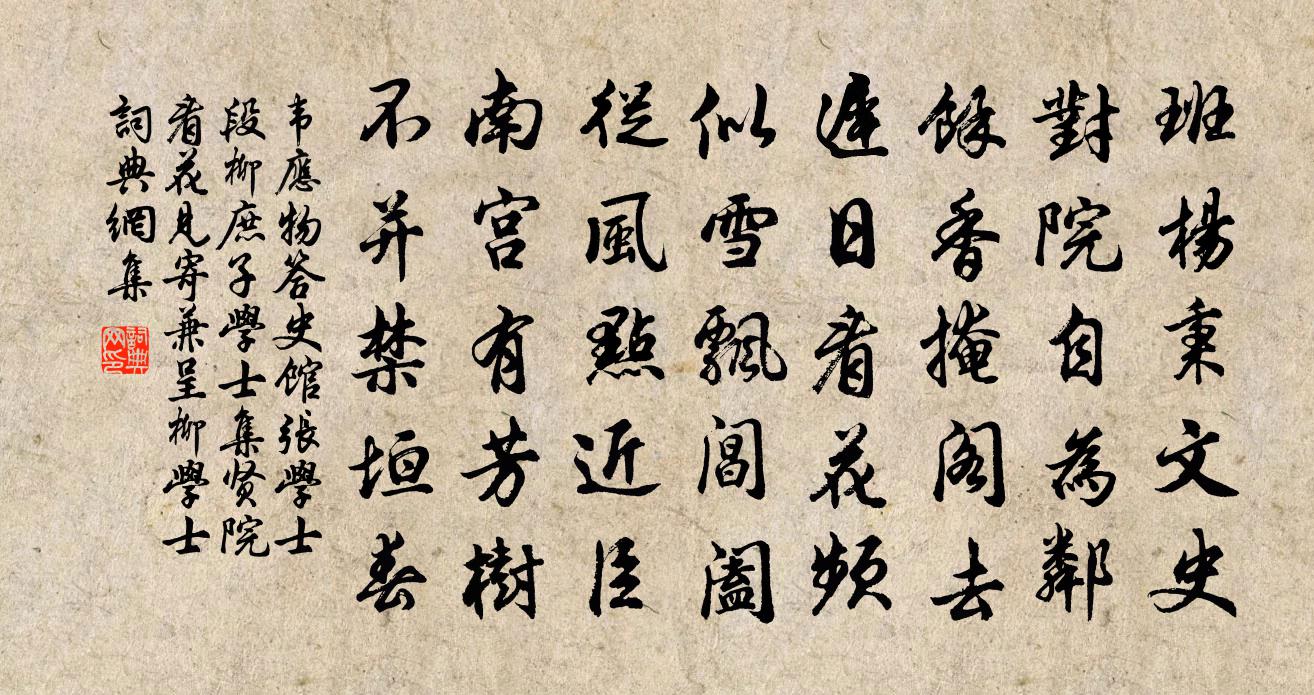 班楊秉文史
對院自為鄰
餘香掩閣去
遲日看花頻
似雪飄閶闔
從風點近臣
南宮有芳樹
不并禁垣春
韦應物答史馆張學士
段柳庶子學士集贤院
看花見寄兼呈柳學士
詞典網集
詞典网印